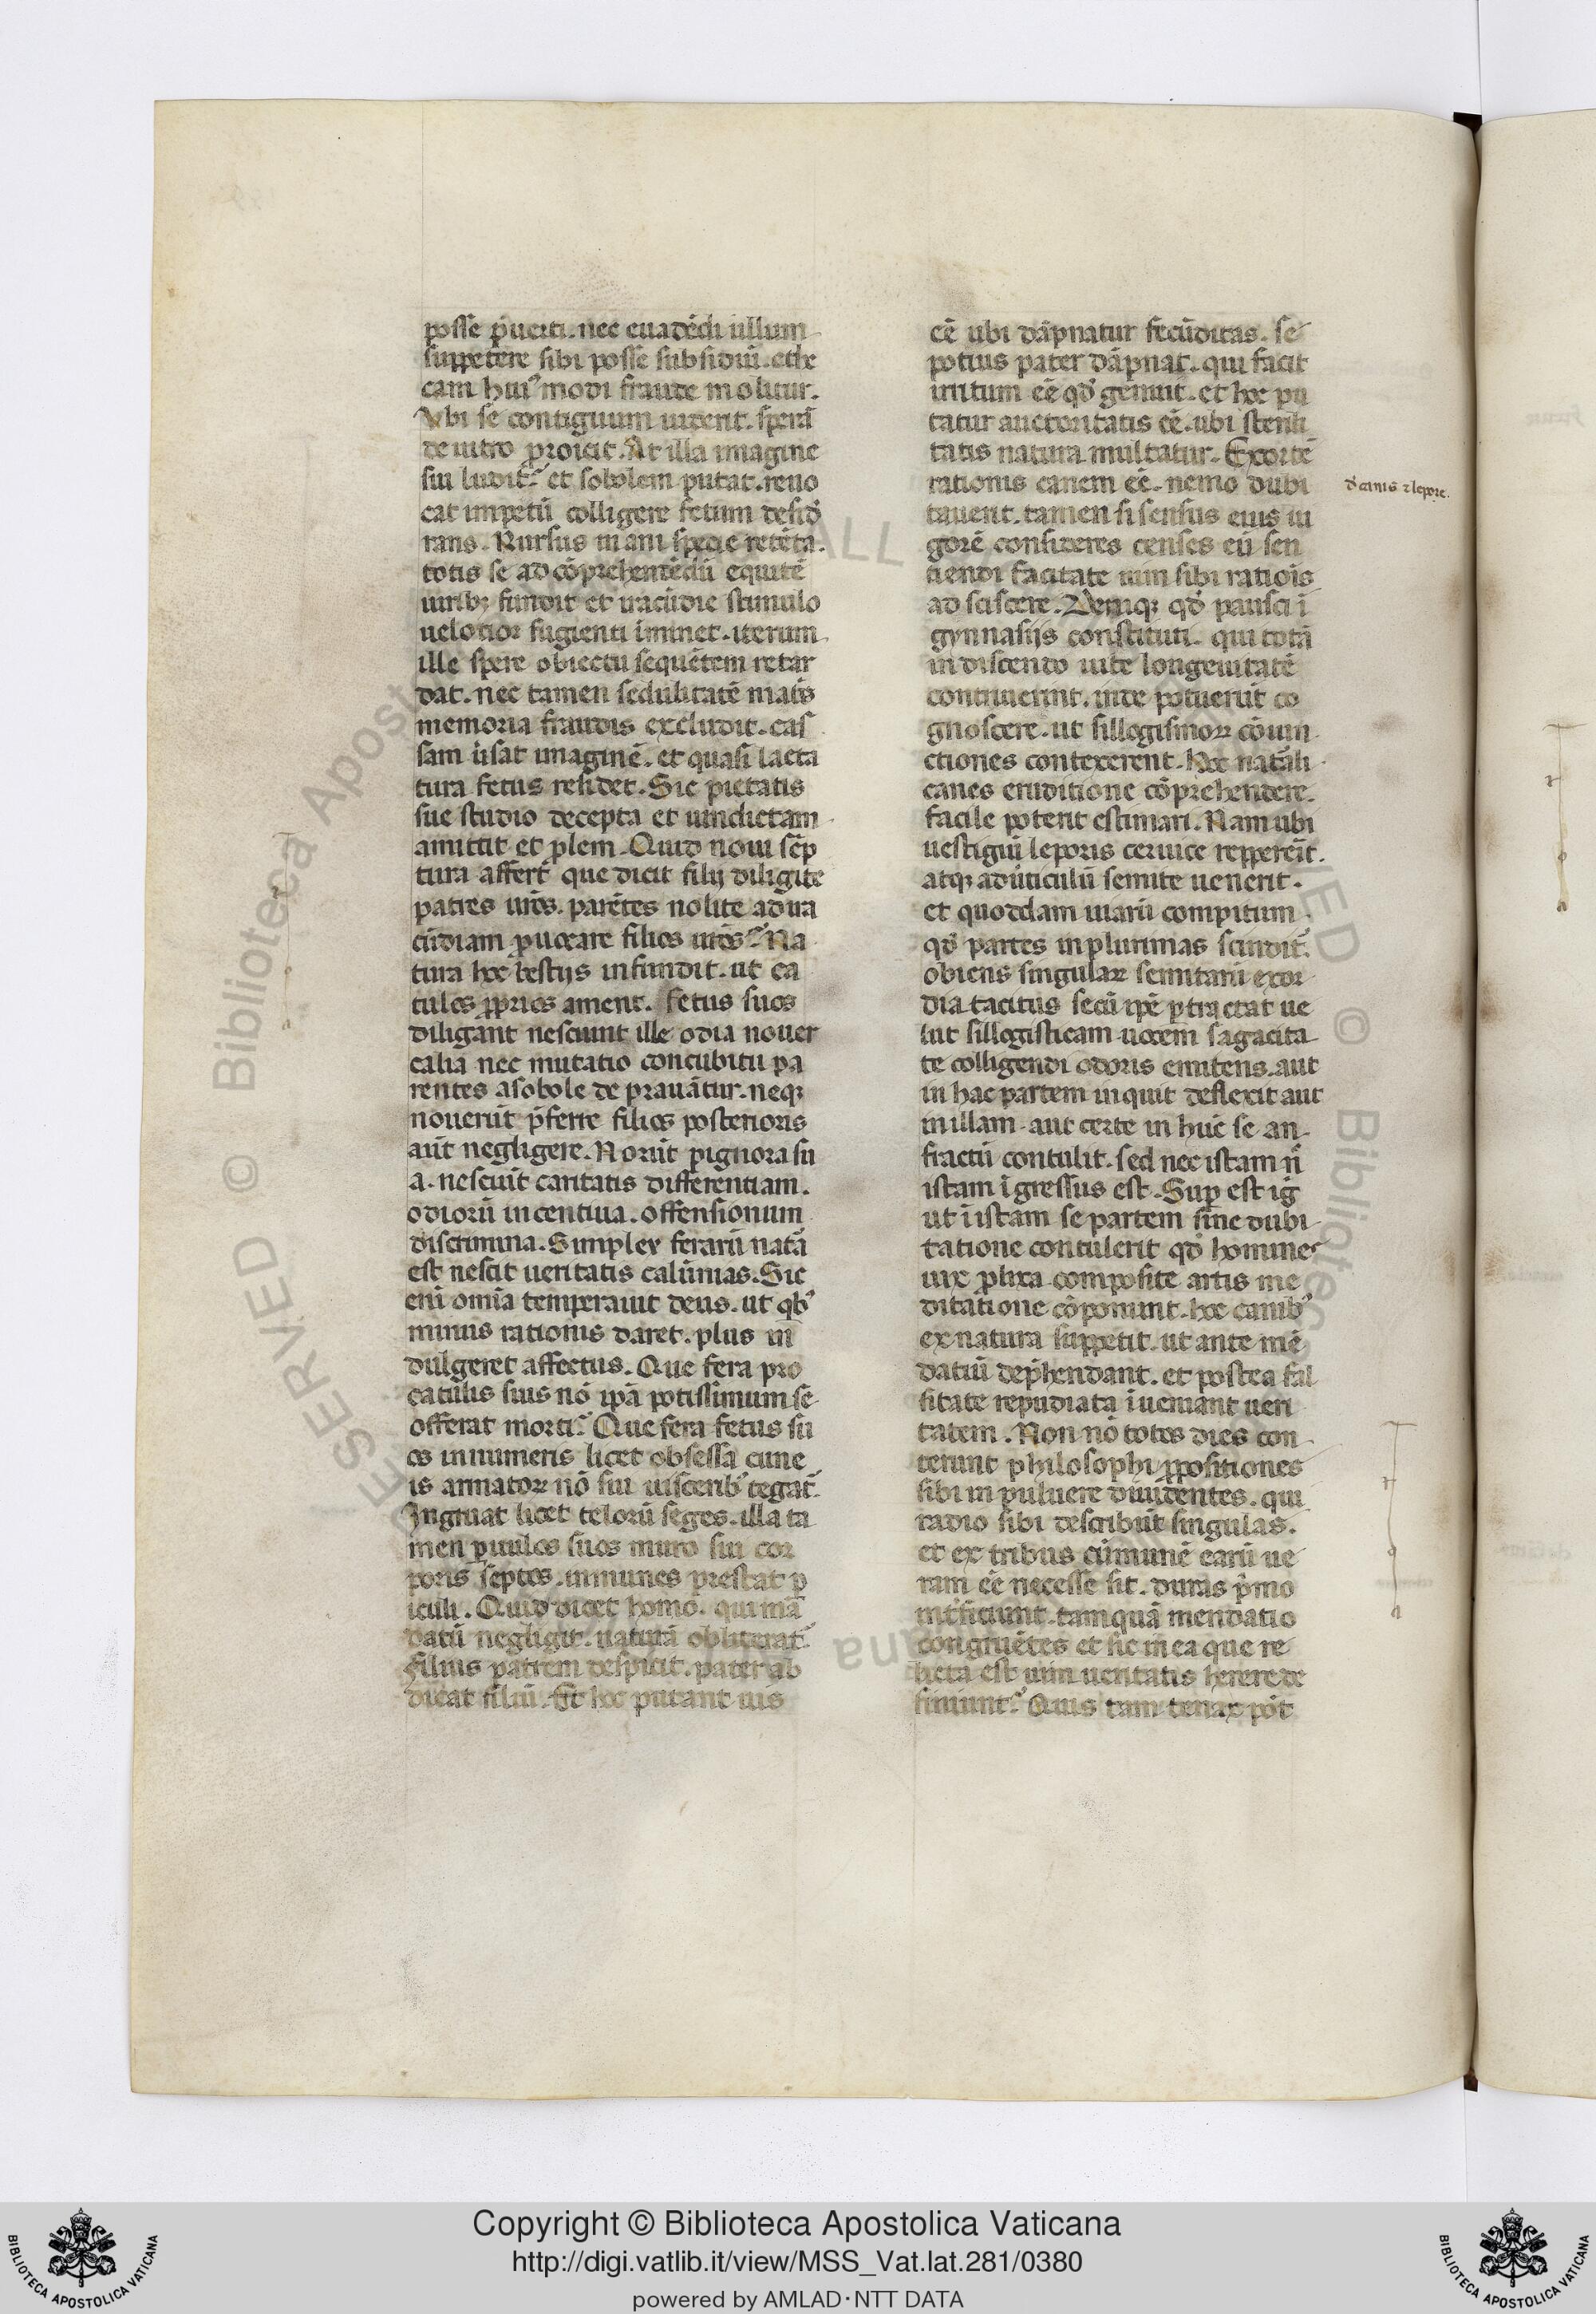 posse p̃ueiti. nec euadẽdi ullum
suppetere sibi posse subsidiũ. the
cam huiꝰmodi fraude molitur.
Vbi se contiguum uiderit. sperã
de uitro proicit. At illa imagine
sui ludit᷑. et sobolem putat. reuo
cat impetũ colligere fetum desid̃
rans. Rursus inani specie retẽta.
totis se ad cõprehendẽdũ equitẽ
uirib; fundit et iracũdie stimulo
uelocior fugienti iminet. iterum
ille spere obiectu sequẽtem retar
dat. nec tamen sedulitatẽ mat̃s
memoria fraudis excludit. cas
sam ũsat imaginẽ. et quasi lacta
tura fetus residet. Sic pietatis
sue studio decepta et uindictam
amittit et plem. Quid noui sc̃p
tura affert᷑ que dicit filij diligite
patres ur̃os. parẽtes nolite ad ira
cũdiam prouocare filios ur̃os᷑. Na
tura hoc bestijs infundit. ut ca
tulos proprios ament. fetus suos
diligant nesciunt ille odia nouer
calia nec mutatio concubitu pa
rentes a sobole deprauãtur. neq;
nouerũt p̃ferre filios posterioris
aut negligere. Norũt pignora su
a. nesciũt caritatis differentiam.
odiorũ incentiua. offensionum
discrimina. Simplex ferarũ natã
est nescit ueritatis calũnias. Sic
eni omĩa temperauit deus. ut qbꝰ
minus rationis daret. plus in
dulgeret affectus. Que fera pro
catulis suis nõ ip̃a potissimum se
offerat morti᷑. Que fera fetus su
os innumeris licet obsessa cune
is armatoꝝ nõ sui uiscerib᷒ tegat᷑.
Ingruat licet telorũ seges. illa ta
men paruulos suos muro sui cor
poris septos. inmunes prestat p
iculi. Quid dicet homo. qui mã
datũ negligit. naturã obliterat᷑.
Filius patrem despicit. pater ab
dicat filiũ. Et hoc putant ius
eẽ ubi dãpnatur fecũditas. se
potius pater dãpnat. qui facit
irritum eẽ qd̃ genuit. et hoc pu
tatur auctoritatis eẽ. ubi sterili
tatis natura multatur. Exortẽ
rationis canem eẽ. nemo dubi
tauerit. tamen si sensus eius ui
gorẽ consideres censes eũ sen
tiendi facitate uim sibi ratiõis
ad sciscere. Deniq; qd̃ pausci ĩ
gynnasijs constituti. qui totã
in discendo uite longeuitatẽ
contriuerint. inde potuerũt co
gnoscere. ut sillogismoꝝ cõiun
ctiones contexerent. hoc natãli
canes eruditione cõprehendere.
facile poterit estimari. Nam ubi
uestigiũ leporis ceruice reppereĩt.
atq; ad ũticulũ semite uenerit.
et quoddam uiarũ compitum
qd̃ partes in plurimas scindit᷑.
obiens singulaꝝ semitarũ exor
dia tacitus secũ ip̃e ptractat ue
lut sillogisticam uocem sagacita
te colligendi odoris emitens. aut
in hac partem inquit deflexit aut
in illam. aut certe in hũc se an
fractũ contulit. sed nec istam ñ
istam ĩgressus est. Sup est ig̃
ut ĩ istam se partem sine dubi
tatione contulerit qd̃ homines
uix prolixa composite artis me
ditatione cõponunt. hoc canib᷒
ex natura suppetit. ut ante mẽ
datiũ dep̃hendant. et postea fal
sitate repudiata ĩueniant ueri
tatem. Non nõ totos dies con
terunt philosophi propositiones
sibi in puluere diuidentes. qui
radio sibi describũt singulas.
et ex tribus cũmunẽ earũ ue
ram eẽ necesse sit. duras p̃mo
int̃ficiunt. tamquã mendatio
congruẽtes et sic in ea que re
licta est uim ueritatis herere de
finiunt᷑. Quis tam tenax põt
d̃ canis ⁊ lepore.
Copyright © Biblioteca Apostolica Vaticana
http://digi.vatlib.it/view/MSS_Vat.lat.281/0380
powered by AMLAD·NTT DATA